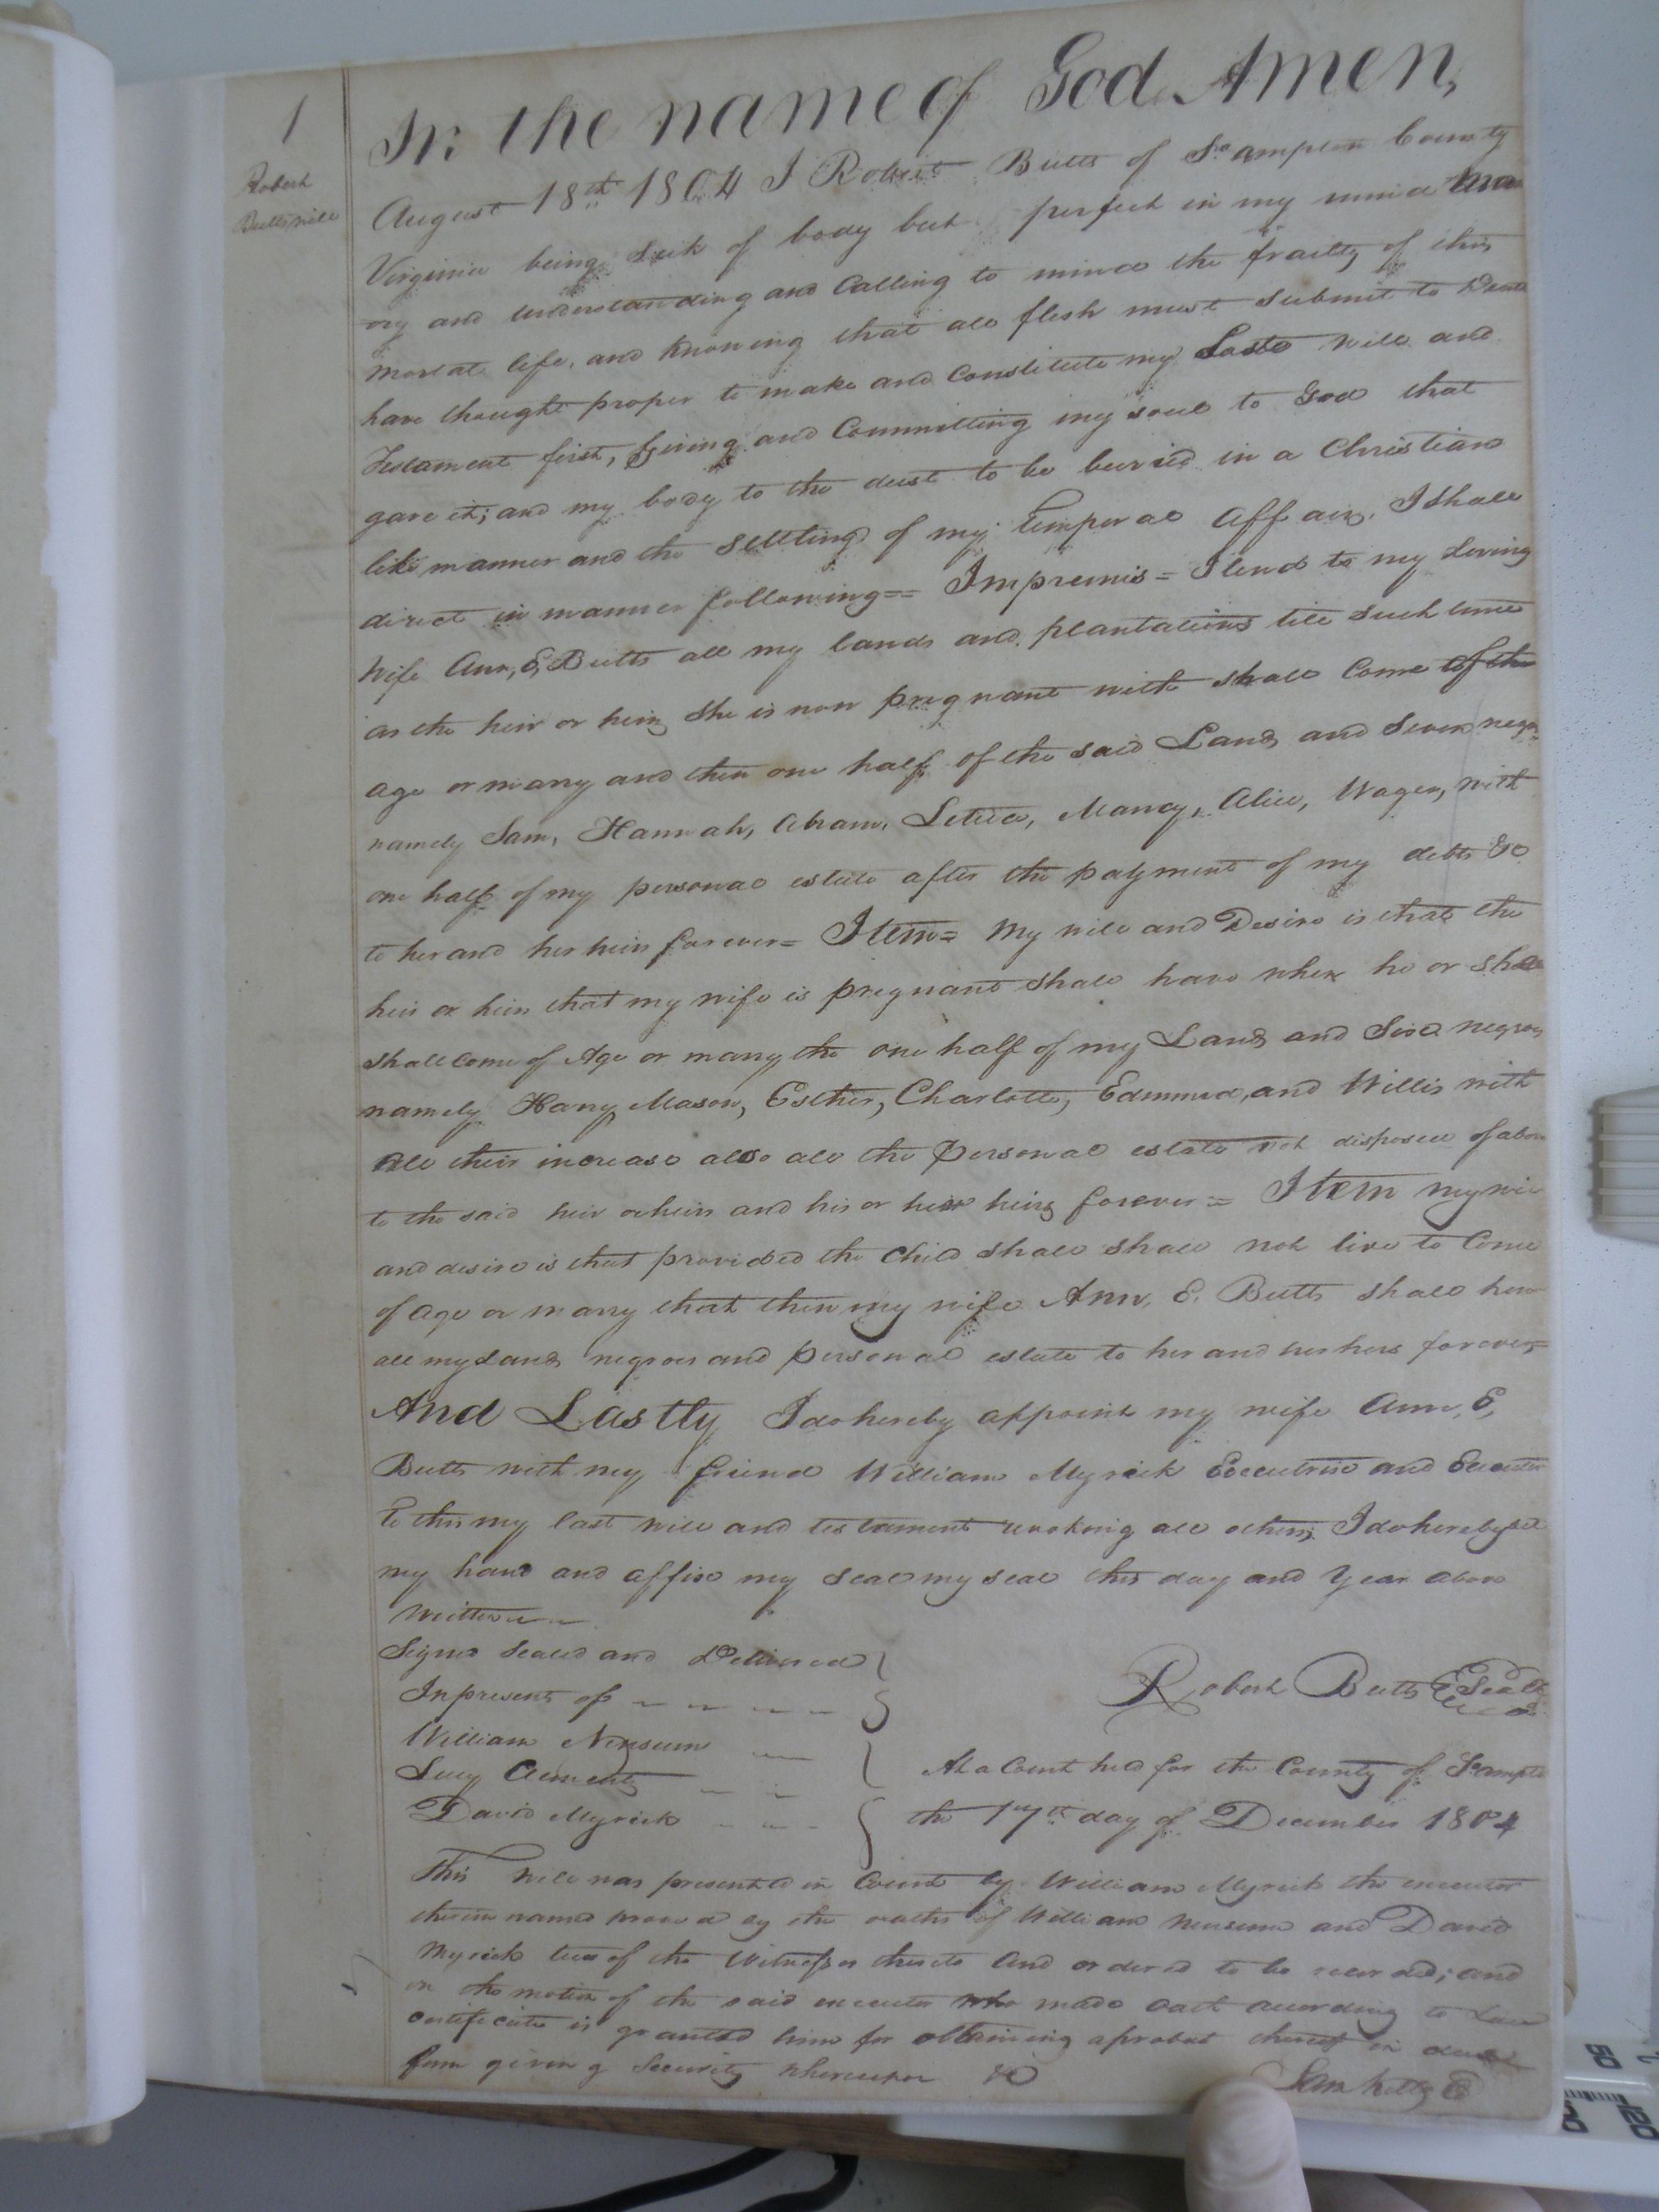 1
Robert
Butts will
In the name of God Amen,
August 18th 1804 I Robert Butts of So ampton County
Virginia being sick of body but perfect in my mind mem
ory and understanding and Calling to mind the frailty of this
mortal life, and knowing that all flesh must submit to Death
have thought proper to make and Constitute my Last will and
Testament first, Giving and Committing my soul to God that
gave it; and my body to the dust to be buried in a Christian
like manner and the settling of my temporal affairs. I shall
direct in manner following == Impremis = I lend to my Loving
Wife Ann, E, Butts all my lands and plantations till such time
as the heir or heirs she is now pregnant with shall Come of the
age or marry and then one half of the said Land and seven negro
namely Sam, Hannah, Abram, Letitia, Nancy, Alice, Wager, with
one half of my personal estate after the payment of my debts &c
to her and her heirs forever = Item = My will and Desire is that the
heir or heirs that my wife is pregnant shall have when he or she
shall come of Age or marry the one half of my Land and Six negroes
namely Harry, Mason, Esther, Charlotte, Edmund, and Willis with
all their increase also all the personal estate not disposed of above
to the said heir or heirs and his or her heirs forever = Item my will
and desire is that provided the Child shall shall not live to Come
of age or marry that then my wife Ann, E. Butts shall have
all my Land negroes and personal estate to her and her heirs forever =
And Lastly I do hereby appoint my wife Ann, E,
Butts with my friend William Myrick Executrix and Executor
to this my last will and testament revoking all others, I do hereby set
my hand and affix my seal my seal this day and Year above
Written
Signed Sealed and Delivered
In presents of
Robert Butts Seal
William Newsum
Lucy Clements
David Myrick
At a Court held for the County of So ampto
the 17th day of December 1804
This will was presented in Court by William Myrick the executor
therein named proved by the oaths of William Newsum and David
Myrick two of the Witnesses thereto and ordered to be recorded; and
on the motion of the said executor who made oath according to Law
certificate is granted him for obtaining a probat thereof in due
form giving Security whereupon &c
Sam Kello C